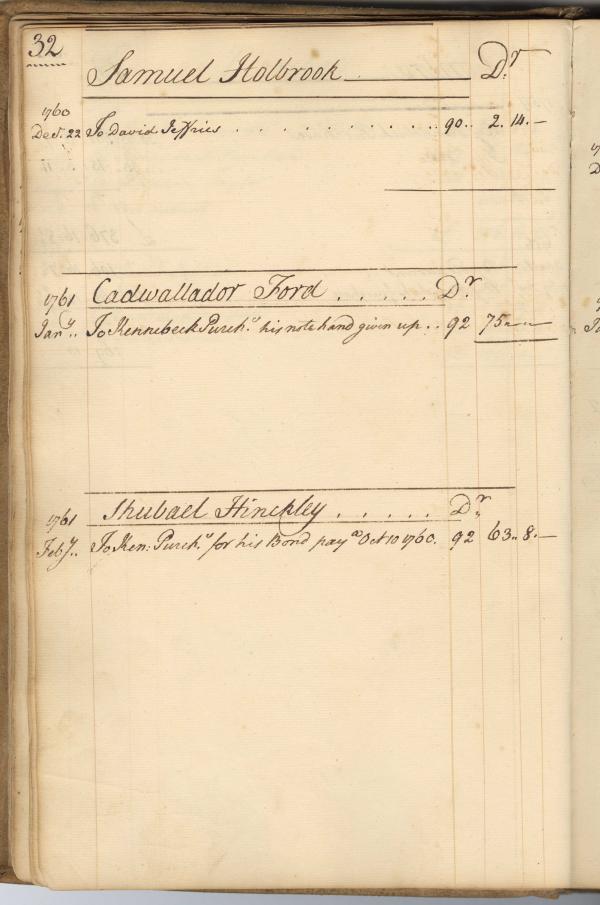 32
Samuel Holbrook Dr
1760
Decr. 22 To David Jeffries . . . . . . . . . . . . 90.. 2. 14. —
1761 Cadwallador Ford . . . . . Dr
Jany.. To Kennebeck Purchrs his note hand given up .. 92 75 " "
1761 Shubael Hinckley . . . . . Dr
Feby.. To Ken: Purchrs for his Bond pay Oct 10 1760. 92 63.. 8. —